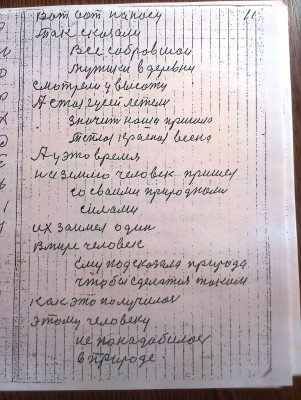 11
Вот вот на носу
Так сказали
Все собравшои
Мужики в деревни
смотрели у высоту
А стая гусей летели
значит наша пришло
Тепла красной весна
А у это время
на землю человек пришел
со сваими природными
силами
их занмел один
в мире человек
Ему подсказала природа
чтобы сделатся таким
как это получилос
этому человеку
не понадабилос
в природе